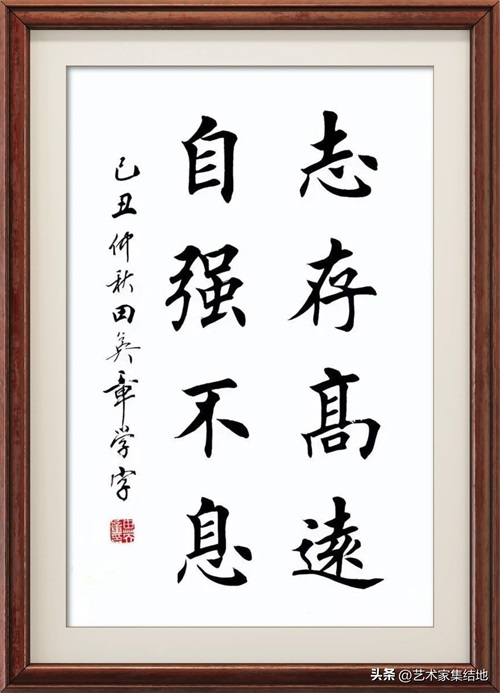 志存髙遠
自强不息
己丑仲秋田英章学字
头条@艺术家集结地